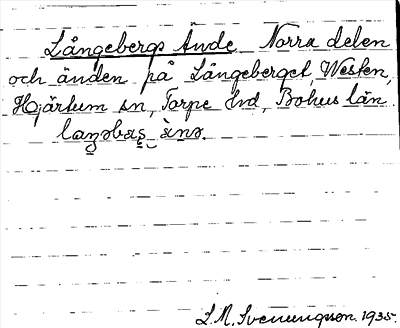 Långebergs Ände Norra delen
och änden på Långeberget, Westen,
Hjärtum sn, Torpe hd, Bohus län.
laŋəbæʂ ànə.
S.M. Svenungsson. 1935.